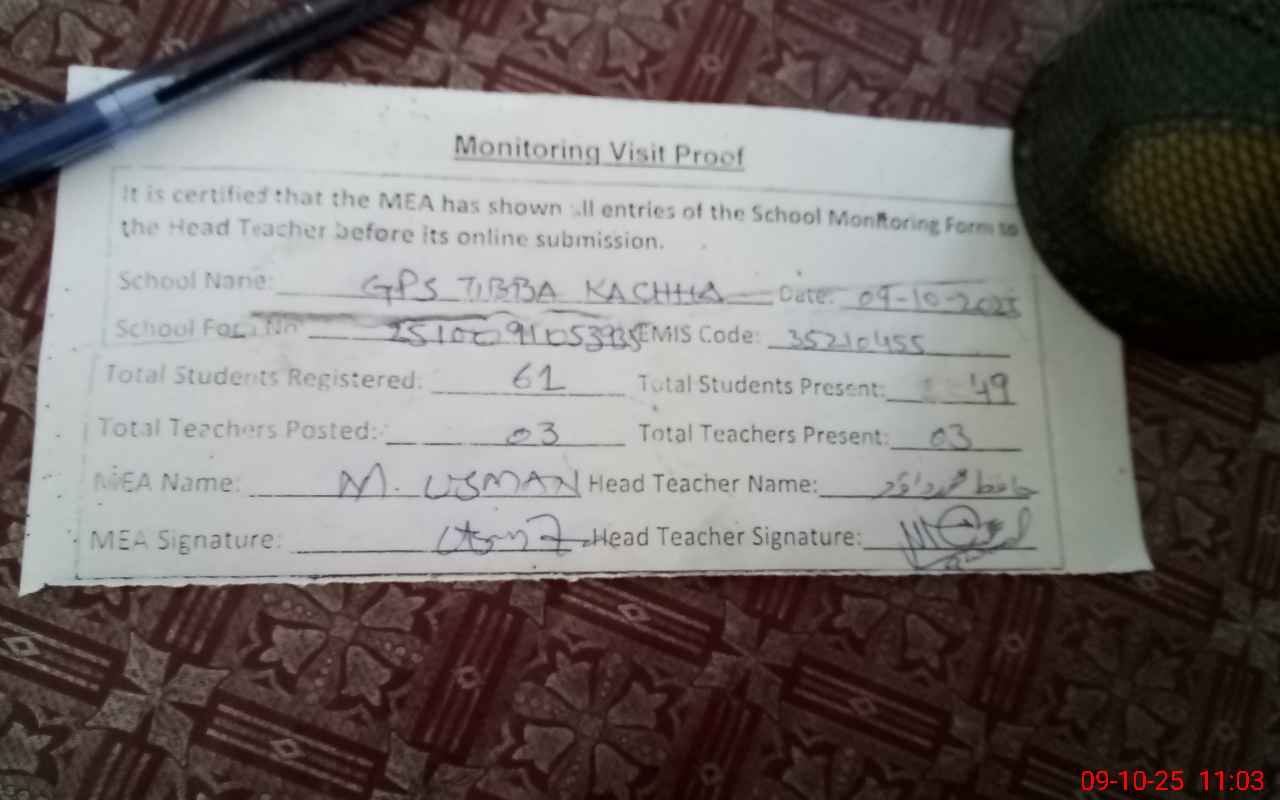 Monitoring Visit Proof
It is certified that the MEA has shown all entries of the School Monitoring Form to
the Head Teacher before its online submission.
School Name: GPS TIBBA KACHHA Date: 09-10-2025
School Form No EMIS Code: 35210455
Total Students Registered: 61 Total Students Present: 49
Total Teachers Posted: 03 Total Teachers Present: 03
MEA Name: M. USMAN Head Teacher Name: حافظ محمد داؤد
MEA Signature: Head Teacher Signature:
09-10-25 11:03